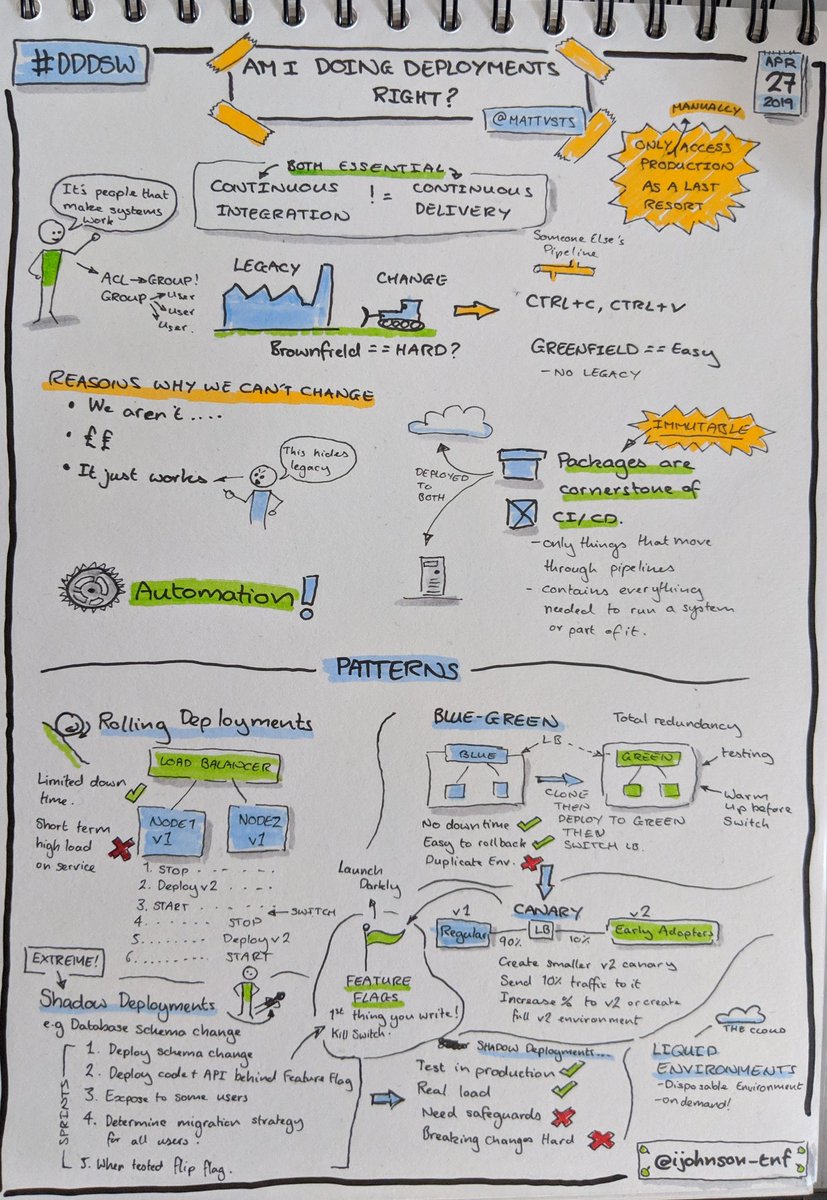 #DDDSW
AM I DOING DEPLOYMENTS
RIGHT?
@MATTVSTS
APR
27
2019
MANUALLY
ONLY ACCESS
PRODUCTION
AS A LAST
RESORT
BOTH ESSENTIAL
CONTINUOUS
INTEGRATION
!=
CONTINUOUS
DELIVERY
It's people that
make systems
work
ACL → GROUP!
GROUP → User
User
User.
LEGACY
CHANGE
Brownfield == HARD?
Someone Else's
Pipeline
CTRL+C, CTRL+V
GREENFIELD == Easy
- NO LEGACY
REASONS WHY WE CAN'T CHANGE
• We aren't....
• ££
• It just works
This hides
legacy
DEPLOYED
TO
BOTH
IMMUTABLE
Packages are
cornerstone of
CI/CD.
- only things that move
through pipelines
- contains everything
needed to run a system
or part of it.
Automation!
PATTERNS
Rolling Deployments
LOAD BALANCER
Limited down
time.
Short term
high load
on service
NODE1
v1
NODE2
v1
1. STOP
2. Deploy v2
3. START
SWITCH
4. STOP
5. Deploy v2
6. START
BLUE-GREEN
LB
BLUE
Total redundancy
GREEN
testing
Warm
up before
switch
CLONE
THEN
DEPLOY TO GREEN
THEN
SWITCH LB.
No downtime
Easy to rollback
Duplicate Env.
Launch
Darkly
FEATURE
FLAGS
1st
thing you write!
Kill Switch.
CANARY
v1
Regular
90%
LB
10%
v2
Early Adopters
Create smaller v2 canary
Send 10% traffic to it
Increase % to v2 or create
full v2 environment
EXTREME!
Shadow Deployments
e.g Database Schema change
SPRINTS
1. Deploy schema change
2. Deploy code + API behind Feature Flag
3. Expose to some users
4. Determine migration strategy
for all users.
5. When tested flip flag.
SHADOW Deployments...
Test in production
Real load
Need safeguards
Breaking changes Hard
THE CLOUD
LIQUID
ENVIRONMENTS
- Disposable Environment
- on demand!
@ijohnson-tnf